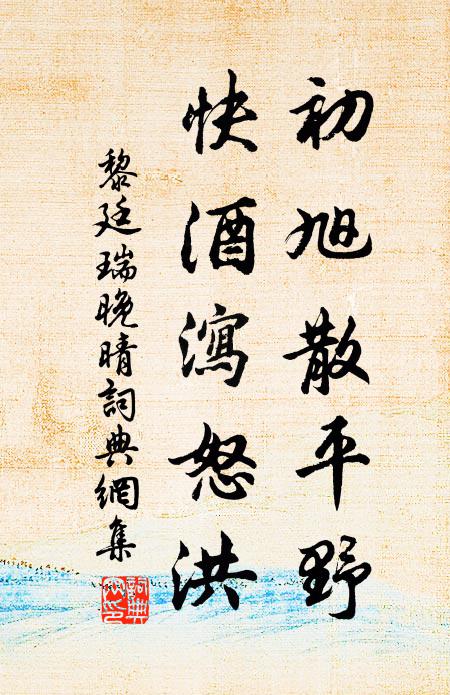 初旭散平野
快酒瀉怒洪
黎廷瑞晚晴詞典網集